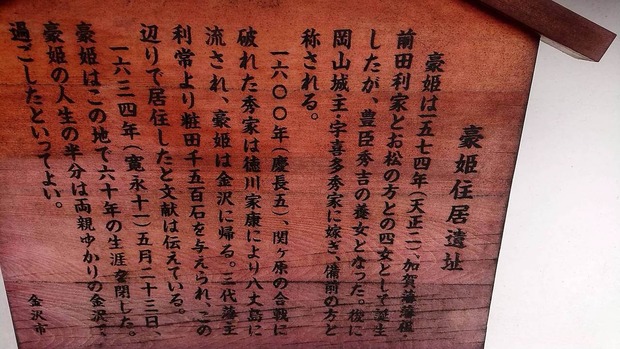 豪姫住居遺址
豪姫は一五七四年（天正二）、加賀藩藩祖・
前田利家とお松の方との四女として誕生
したが、豊臣秀吉の養女となった。後に
岡山城主・宇喜多秀家に嫁ぎ、備前の方と
称される。
一六〇〇年（慶長五）、関ヶ原の合戦に
破れた秀家は徳川家康により八丈島に
流され、豪姫は金沢に帰る。三代藩主
利常より粧田千五百石を与えられ、この
辺りで居住したと文献は伝えている。
一六三四年（寛永十一）五月二十三日、
豪姫はこの地で六十年の生涯を閉じた。
豪姫の人生の半分は両親ゆかりの金沢で
過ごしたといってよい。
金沢市